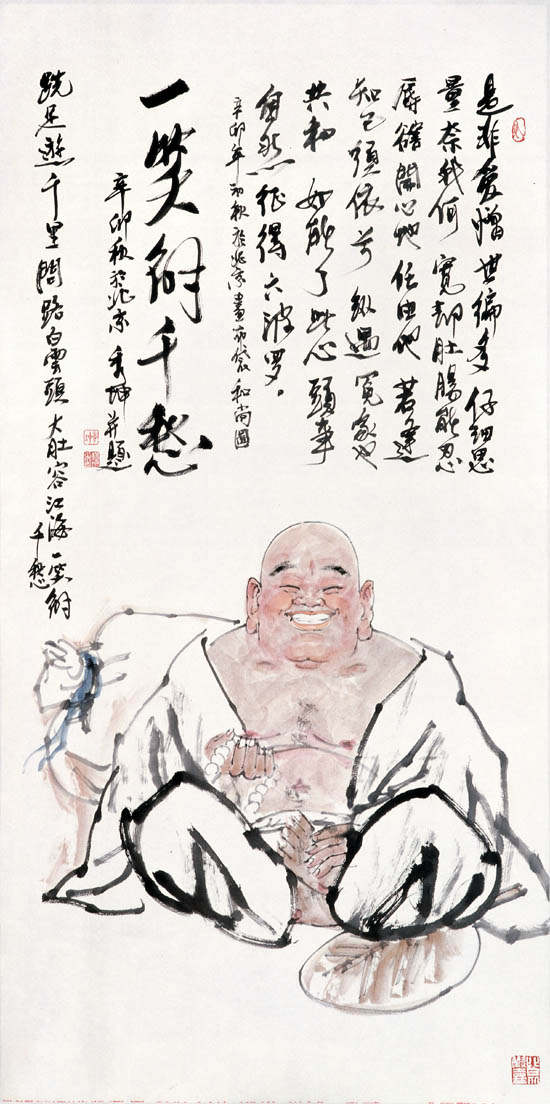 是非愛憎世偏多 仔細思
量奈我何 寬却肚腸能忍
辱豁開心地任由他 若逢
知己須依分 縱遇冤家也
共和 如能了此心頭事
自然征得六波罗。
辛卯年初秋於北京畫布袋和尚圖
一笑解千愁
辛卯秋於北京 并題
跣足遊千里 問路白雲頭 大肚容江海 一笑解
千愁